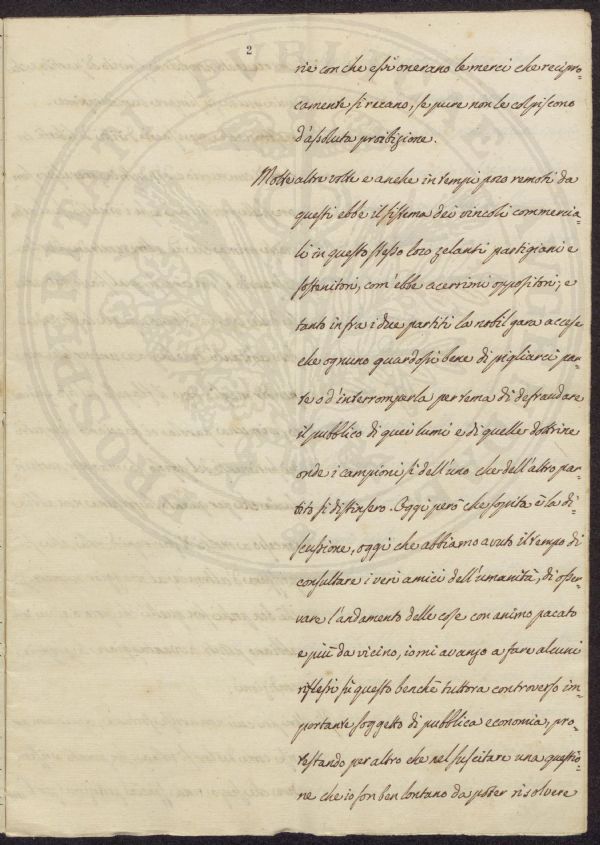 2
rie con che essi onerano le merci che recipro=
camente si recano, se pure non le colpiscono
d'assoluta proibizione.
Molte altre volte e anche in tempi poco remoti da
questi ebbe il sistema dei vincoli commercia=
li in questo stesso loco zelanti partigiani e
sostenitori, com'ebbe acerrimi oppositori; e
tanto infra i due partiti la nobil gara accese
che ognuno guardossi bene di pigliarci par=
te o d'interromperla per tema di defraudare
il pubblico di quei lumi e di quelle dottrine
onde i campioni sì dell'uno che dell'altro par=
tito si distinsero. Oggi però che sopita è la di=
scussione, oggi che abbiamo avuto il tempo di
consultare i veri amici dell'umanità, di osser=
vare l'andamento delle cose con animo pacato
e più da vicino, io mi avanzo a fare alcuni
riflessi sù questo benchè tuttora controverso im=
portante soggetto di pubblica economia, pro=
testando per altro che nel suscitare una questio=
ne che io son ben lontano da poter risolvere